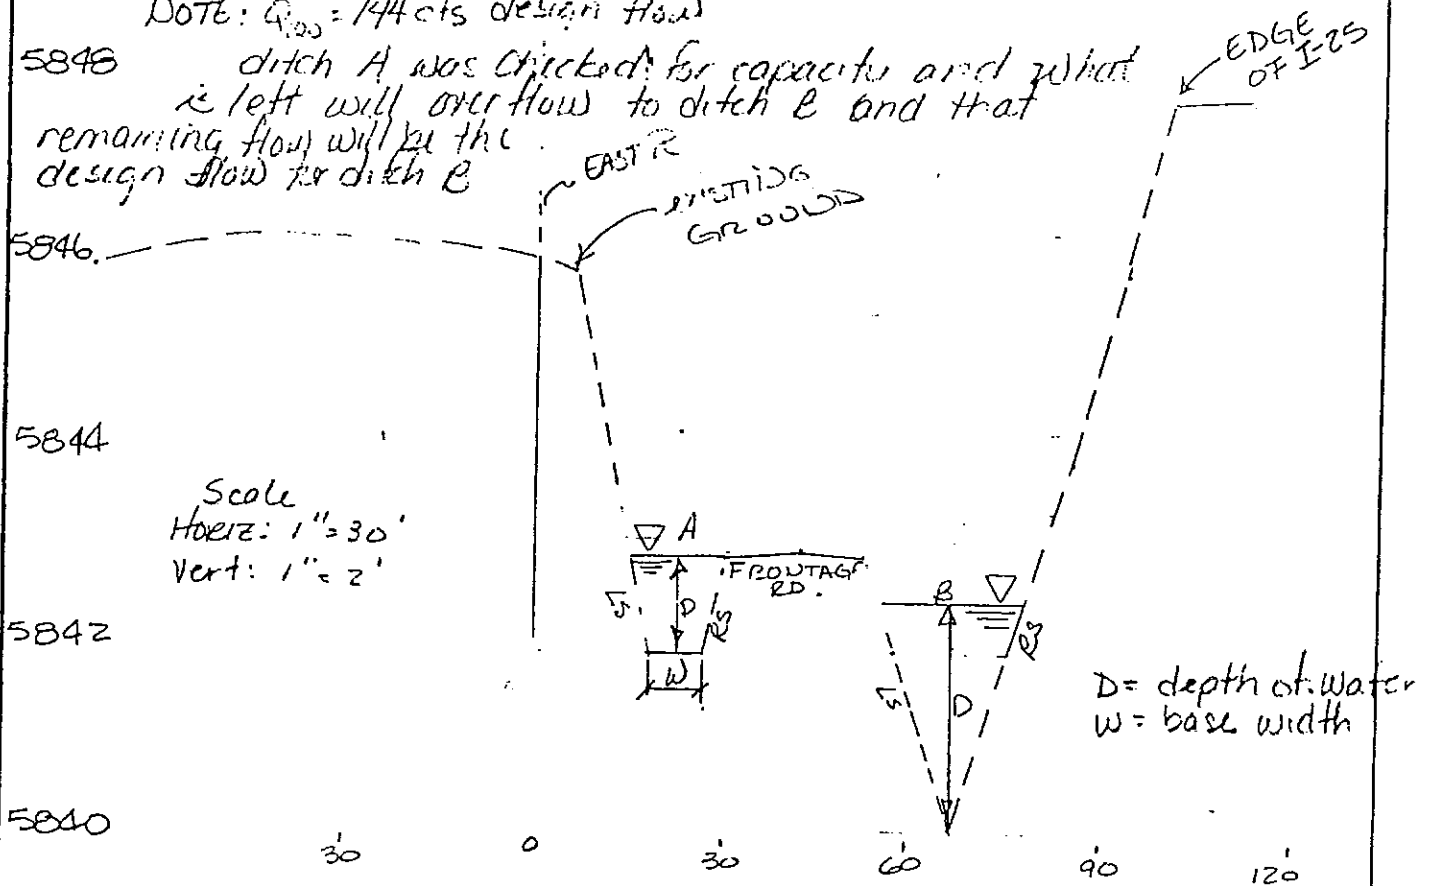 NOTE: Q100 = 144 cfs design flow
5848 ditch A was checked for capacity and what
is left will overflow to ditch B and that
remaining flow will be the
design flow for ditch B
EDGE
OF I-25
EAST R
EXISTING
GROUND
5846
5844
Scale
Horiz: 1"=30'
Vert: 1"=2'
A
FRONTAGE
RD.
B
5842
LS
D
RS
W
LS
D
RS
D= depth of water
W= base width
5840
30 0 30 60 90 120